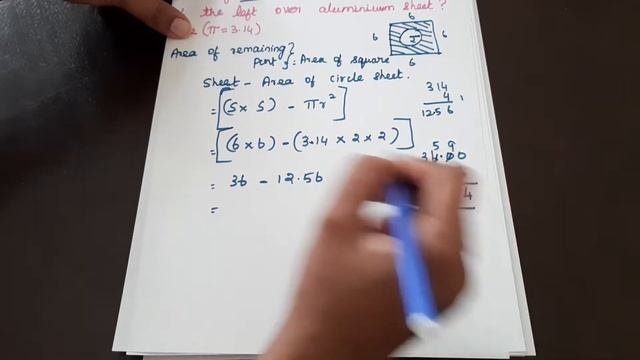 the left over aluminium sheet?
(π = 3.14)
6
6 6
6
Area of remaining}
Part } = Area of square
Sheet - Area of circle sheet.
= [(s x s) - πr²]
= [(6 x 6) - (3.14 x 2 x 2)]
= 36 - 12.56
=
314
4
12.56
5 9
36.00
4